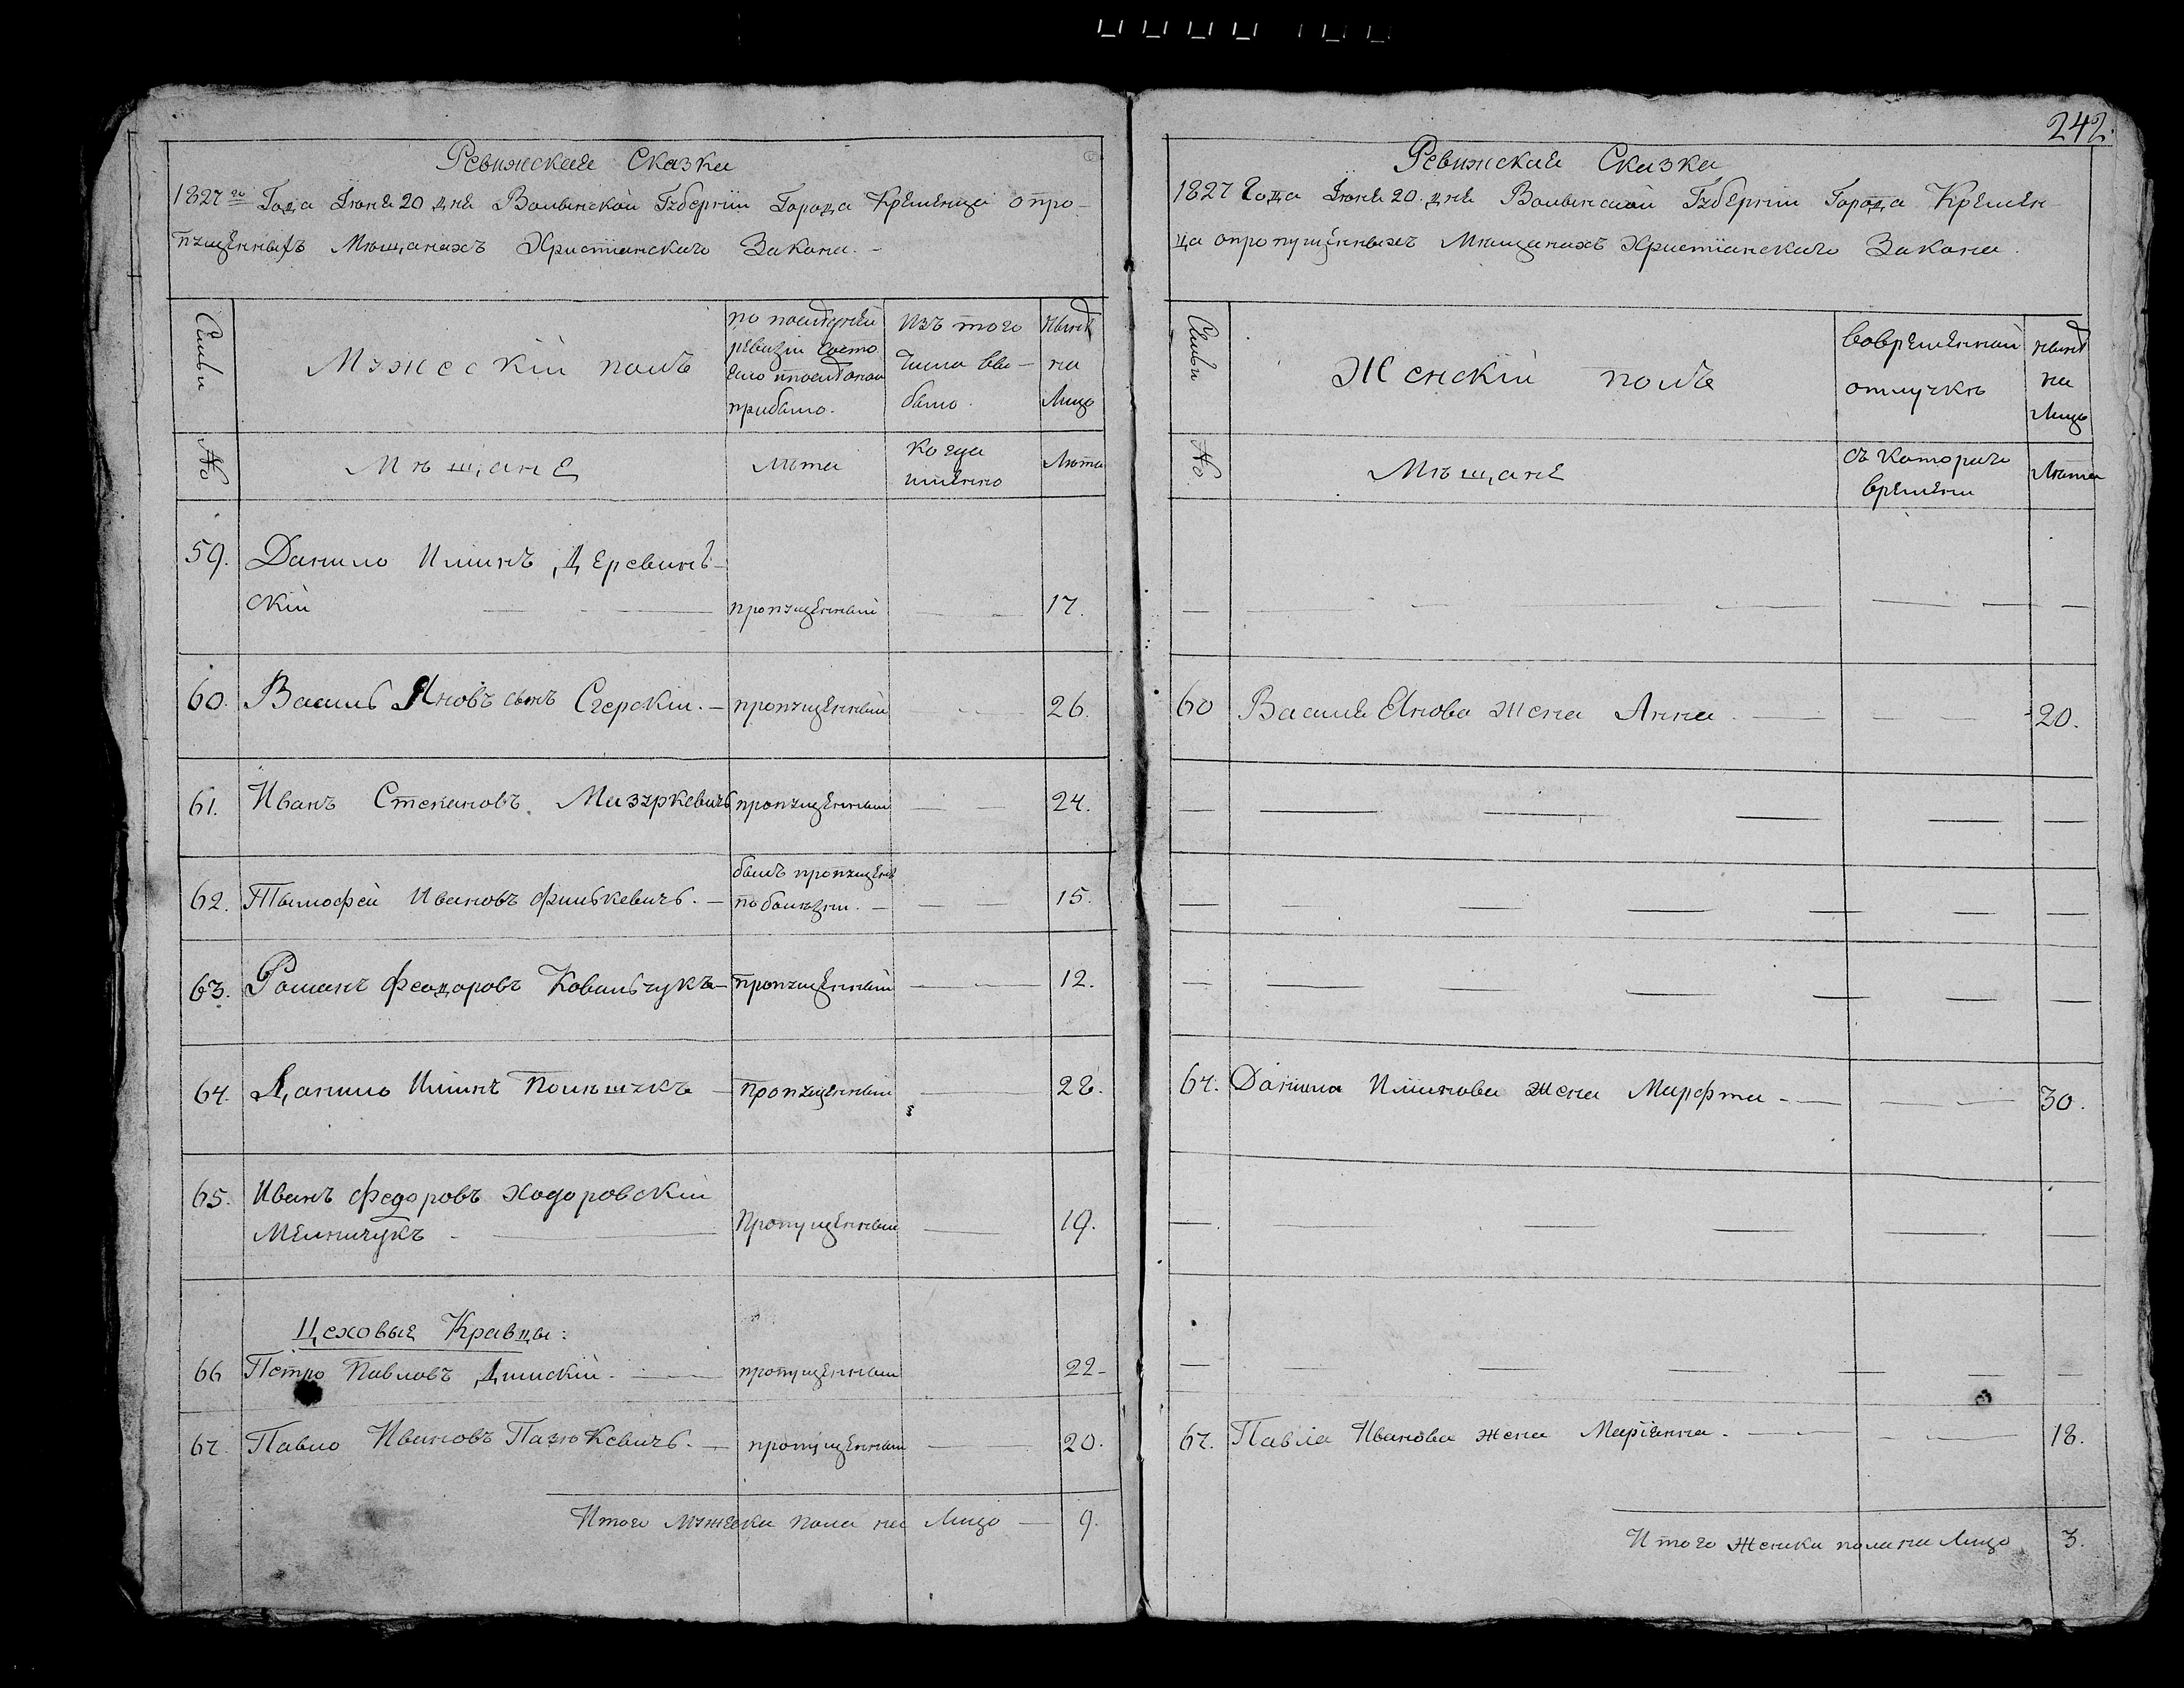 242.
Ревижская Сказка
1827го Года Іюня 20 дня Волынской Губерніи Города Кременца о про-
пущенныхъ Мѣщанахъ Христіанскаго Закона. -
Семьи
Мужескій полъ
по последней
ревизіи состо
яло и после оной
прибыло.
Изъ того
Числа вы-
было.
ныне
на
Лицо
№
Мѣщане
Лѣта
Когда
именно
Лѣта
59. Данило Илiинъ Деревинь-
скій пропущенный 17.
60. Василь Яновъ сынъ Сгерскій. - пропущенный 26.
61. Иванъ Степановъ Мазуркевичъ пропущенный 24.
былъ пропущенъ
62. Тымофей Ивановъ Филькевичъ. - по болѣзни. - 15.
63. Романъ Феодоровъ Ковальчукъ - пропущенный 12.
64. Данило Илiинъ Полѣщукъ - пропущенный 28.
65. Иванъ Федоровъ Ходоровскій
Мельничукъ - Пропущенный 19.
Цеховые Кравцы:
66 Петро Павловъ Длускій. пропущенный 22-
67. Павло Ивановъ Пазюкевичъ. - пропущенный 20.
Итого мужеска пола на Лицо - 9.
Ревижская Сказка
1827 Года Іюня 20. дня Волынской Губерніи Города Кремен-
ца опропущенныхъ Мѣщанахъ Христіанскаго Закона.
Семьи
Женскій полъ
вовременной
отлучкѣ
ныне
на
Лицо
№
Мѣщане
съ котораго
времени
Лѣта
60 Василя Янова жена Анна. 20.
64. Данила Илiинова жена Марфта - 30.
67. Павла Иванова жена Маріянна. 18.
Итого женска пола на Лицо 3.